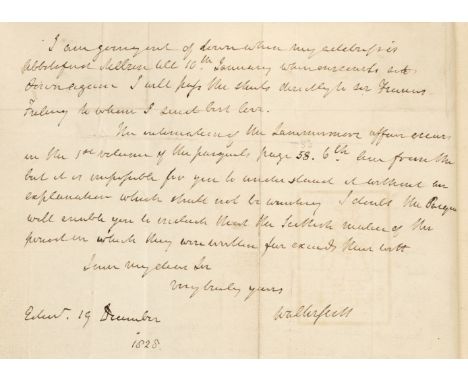 I am going out of town when my address is
Abbotsford Melrose till 10th January when our courts sit
down again I will pass the sheets directly to Sir Francis
Freling to whom I send best love.
The intimation of the Lammermoor affair occurs
in the 1st volume of the pasquils page 58. 6th line from the
but it is impossible for you to understand it without an
explanation which shall not be wanting I doubt the Pasquils
will enable you to conclude that the Scottish malice of the
period in which they were written far exceeds their wit
I am my dear Sir
very truly yours
Walter Scott
Edinr. 19 December
1828.